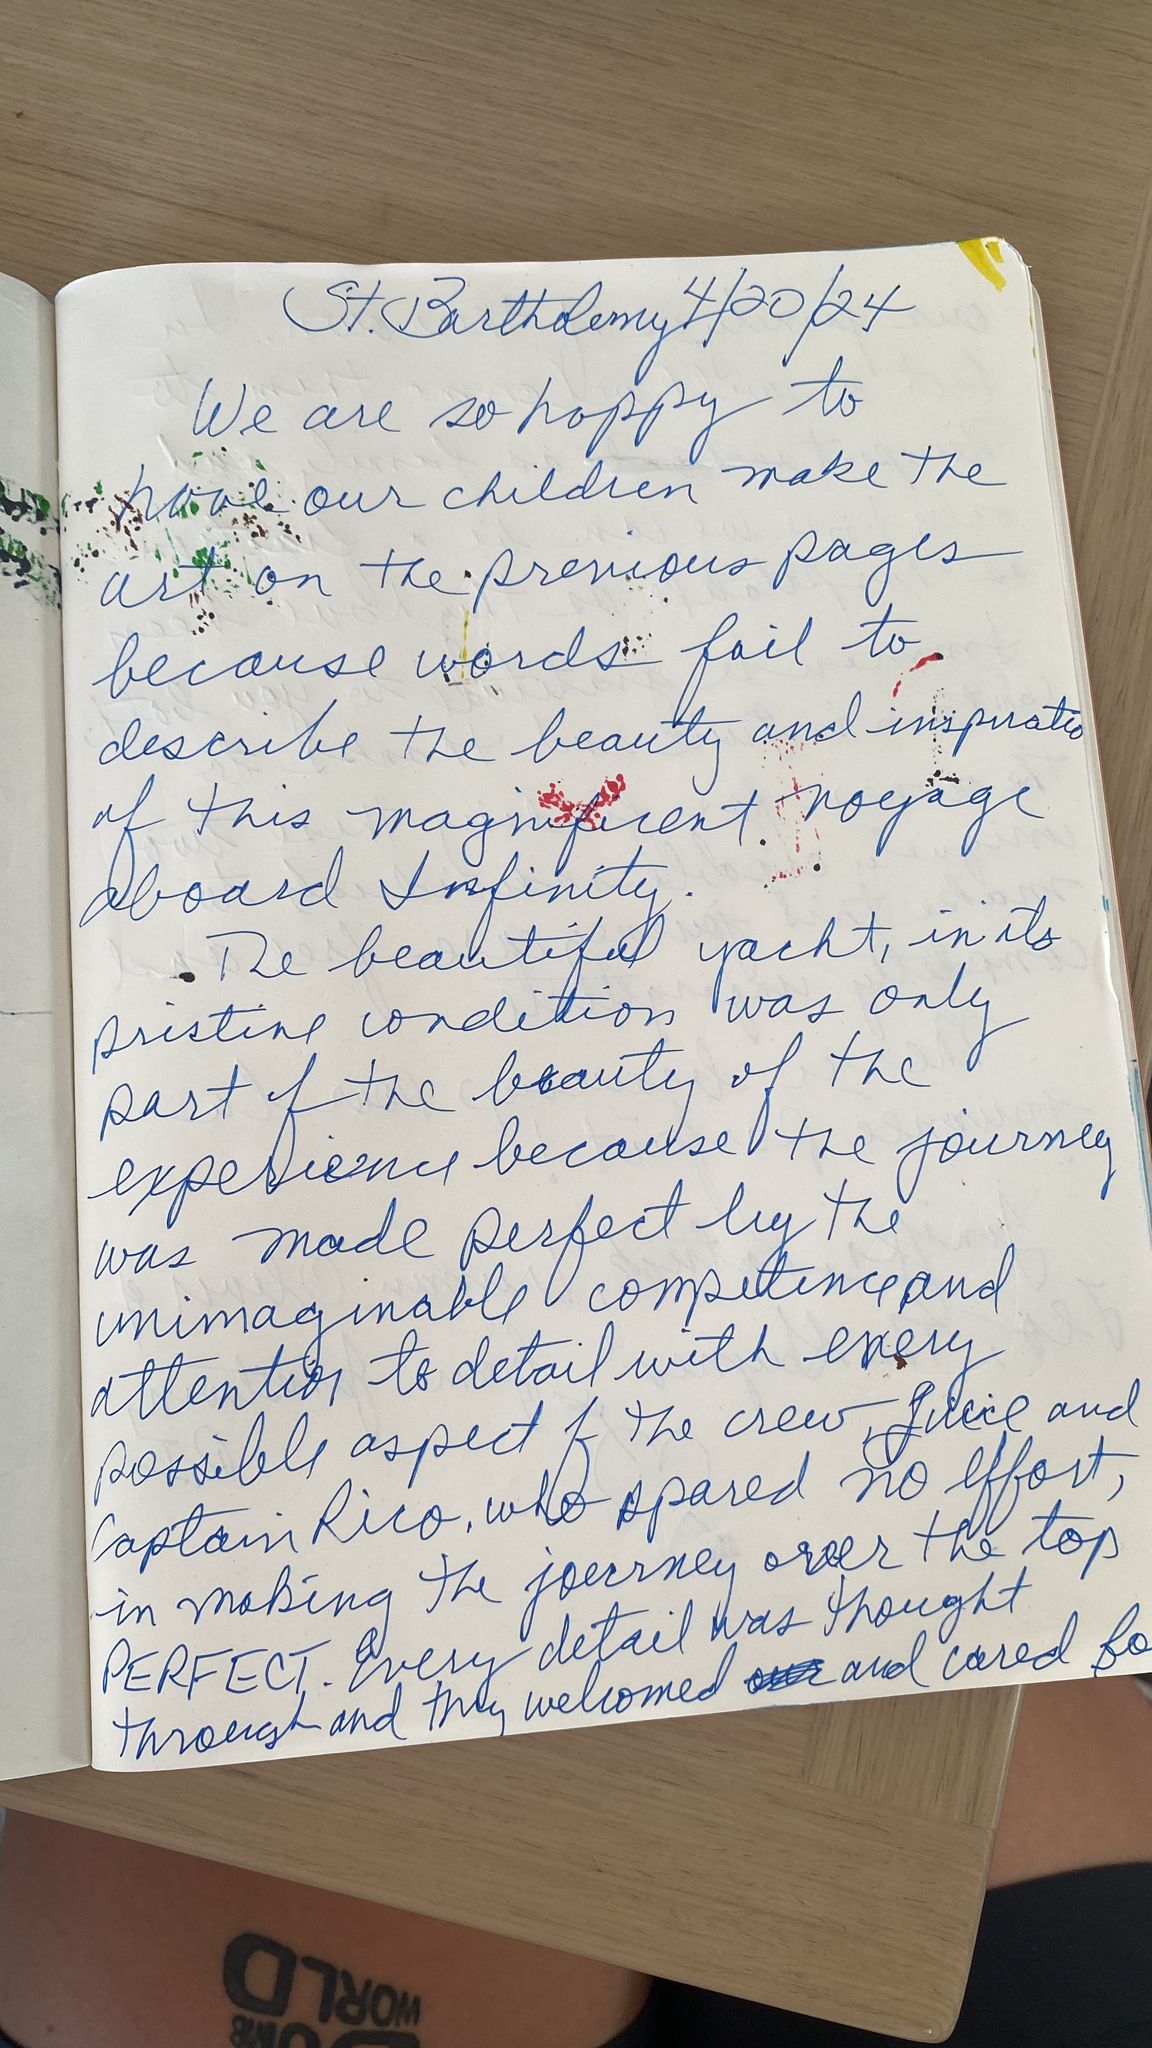 St. Barthdemy 4/20/24
We are so happy to
have our children make the
art on the previous pages
because words fail to
describe the beauty and inspiratio
of this magnificent voyage
aboard Infinity.
The beautiful yacht, in its
pristine condition was only
part of the beauty of the
experience because the journey
was made perfect by the
unimaginable competence and
attention to detail with every
possible aspect of the crew, and
Captain Rico, who spared no effort,
in making the journey over the top
PERFECT. Every detail was thought
through and they welcomed and cared fo
WORLD